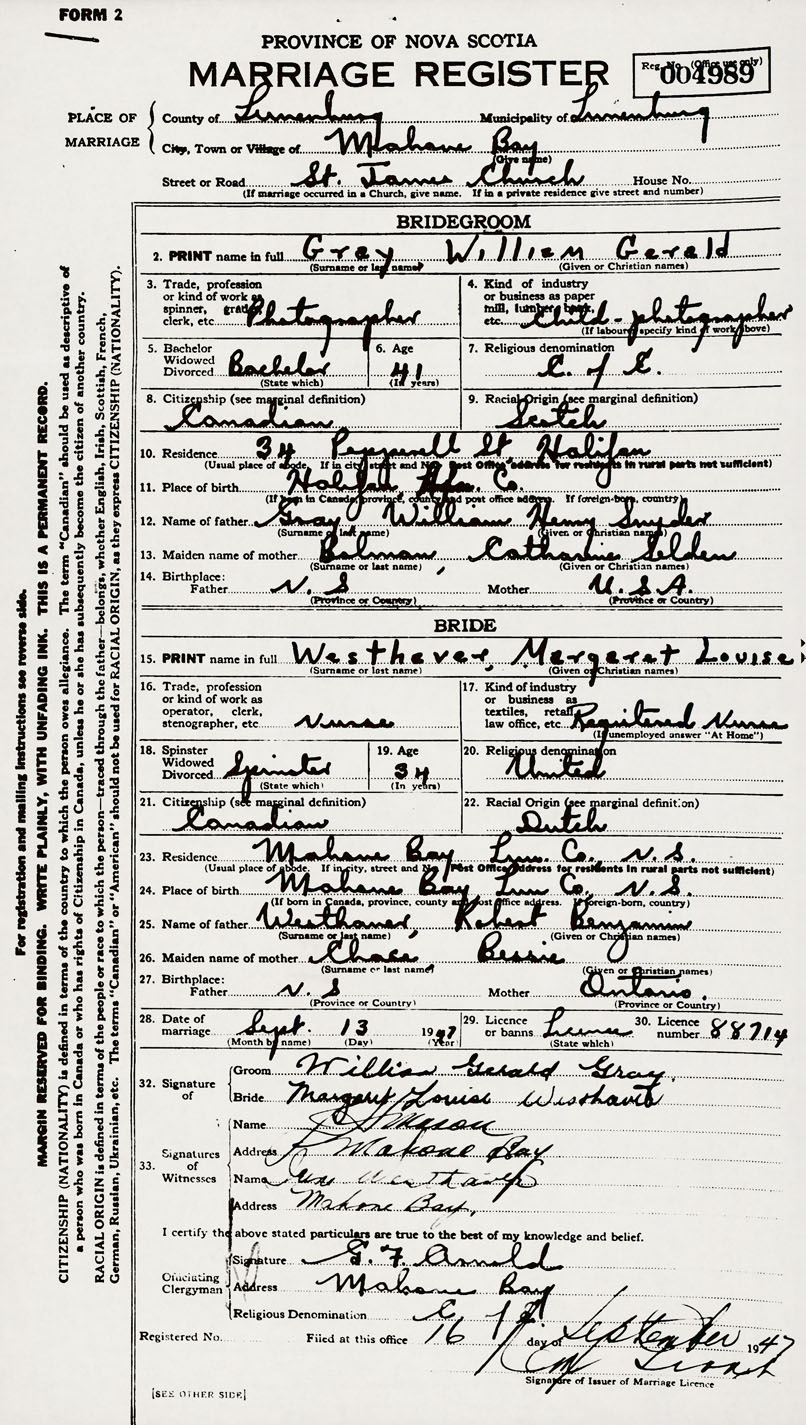 FORM 2
PROVINCE OF NOVA SCOTIA
MARRIAGE REGISTER
Reg. No. (Office use only)
004989
PLACE OF MARRIAGE
County of Lunenburg Municipality of Lunenburg
City, Town or Village of Mahone Bay
(Give name)
Street or Road St. James Church House No.
(If marriage occurred in a Church, give name. If in a private residence give street and number)
BRIDEGROOM
2. PRINT name in full Gray William Gerald
(Surname or last name) (Given or Christian names)
3. Trade, profession or kind of work as spinner, grader, clerk, etc. Photographer
4. Kind of industry or business as paper mill, lumber, bank, etc. Child-photographer
(If labourer specify kind of work above)
5. Bachelor Widowed Divorced Bachelor
(State which)
6. Age 41
(In years)
7. Religious denomination C. of E.
8. Citizenship (see marginal definition) Canadian
9. Racial Origin (see marginal definition) Scotch
10. Residence 34 Pepperell St. Halifax
(Usual place of abode. If in city, street and No. Post Office address for residents in rural parts not sufficient)
11. Place of birth Halifax, Hfx. Co.
(If born in Canada, province, county and post office address. If foreign-born, country)
12. Name of father Gray William Henry Snyder
(Surname or last name) (Given or Christian names)
13. Maiden name of mother Bolman, Catharine Selden
(Surname or last name) (Given or Christian names)
14. Birthplace:
Father N. S Mother U. S. A.
(Province or Country) (Province or Country)
BRIDE
15. PRINT name in full Westhaver, Margaret Louise
(Surname or last name) (Given or Christian names)
16. Trade, profession or kind of work as operator, clerk, stenographer, etc. Nurse
17. Kind of industry or business as textiles, retail, law office, etc. Registered Nurse
(If unemployed answer "At Home")
18. Spinster Widowed Divorced Spinster
(State which)
19. Age 34
(In years)
20. Religious denomination United
21. Citizenship (see marginal definition) Canadian
22. Racial Origin (see marginal definition) Dutch
23. Residence Mahone Bay Lun. Co., N. S.
(Usual place of abode. If in city, street and No. Post Office address for residents in rural parts not sufficient)
24. Place of birth Mahone Bay Lun Co, N. S.
(If born in Canada, province, county and post office address. If foreign-born, country)
25. Name of father Westhaver, Robert Benjamin
(Surname or last name) (Given or Christian names)
26. Maiden name of mother Chace Bessie
(Surname or last name) (Given or Christian names)
27. Birthplace:
Father N. S Mother Ontario.
(Province or Country) (Province or Country)
28. Date of marriage Sept. 13 1947
(Month by name) (Day) (Year)
29. Licence or banns License
(State which)
30. Licence number 88714
32. Signature of
Groom William Gerald Gray.
Bride Margaret Louise Westhaver
33. Signatures of Witnesses
Name
Address Mahone Bay
Name Westhaver
Address Mahone Bay,
I certify the above stated particulars are true to the best of my knowledge and belief.
Officiating Clergyman
Signature G. F. Arnold
Address Mahone Bay
Religious Denomination C of E
Registered No. Filed at this office 16 day of September 1947
Signature of Issuer of Marriage Licence
[SEE OTHER SIDE]
For registration and mailing instructions see reverse side.
MARGIN RESERVED FOR BINDING. WRITE PLAINLY, WITH UNFADING INK. THIS IS A PERMANENT RECORD.
CITIZENSHIP (NATIONALITY) is defined in terms of the country to which the person owes allegiance. The term "Canadian" should be used as descriptive of
a person who was born in Canada or who has rights of Citizenship in Canada, unless he or she has subsequently become the citizen of another country.
RACIAL ORIGIN is defined in terms of the people or race to which the person—traced through the father—belongs, whether English, Irish, Scottish, French,
German, Russian, Ukrainian, etc. The terms "Canadian" or "American" should not be used for RACIAL ORIGIN, as they express CITIZENSHIP (NATIONALITY).